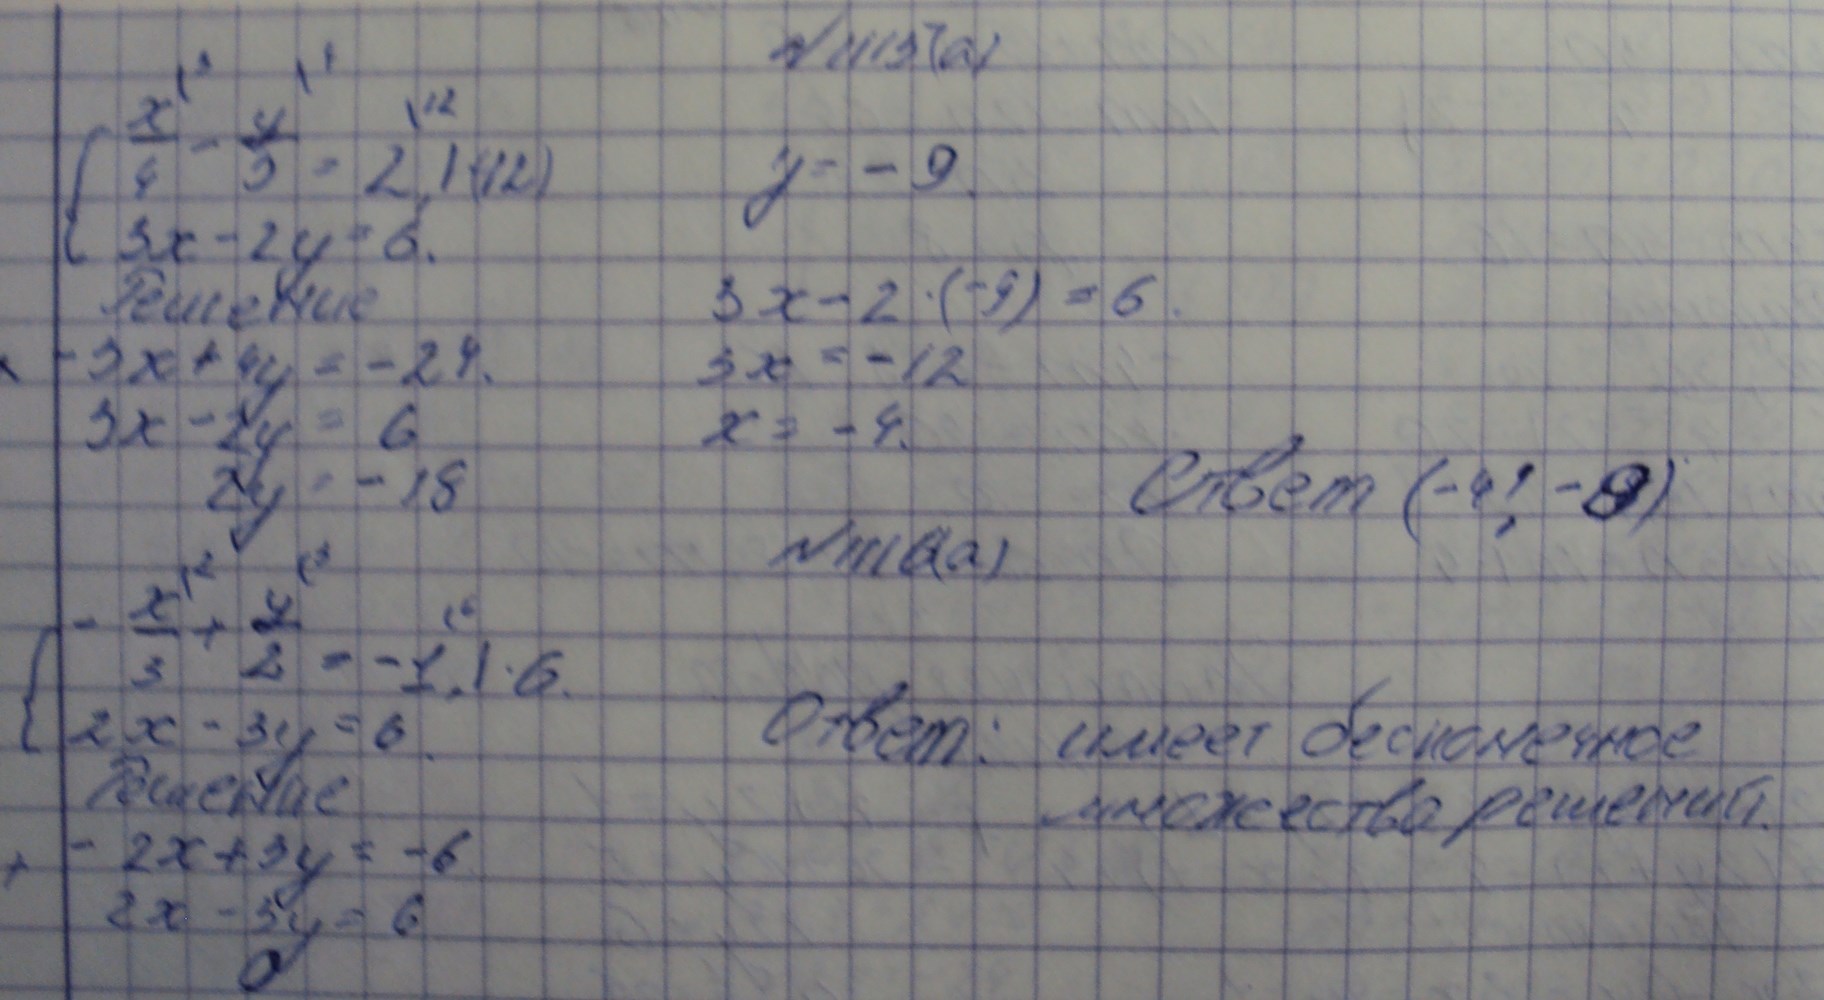 N 1113 (а)
x/4 \3 - y/3 \4 = 2 \12, | (12)
3x - 2y = 6.
Решение
- 3x + 4y = -24.
3x - 2y = 6
2y = -18
y = - 9.
3x - 2 · (-9) = 6.
3x = -12
x = -4.
Ответ (-4; -9)
N 1116 (а)
- x/3 \2 + y/2 \3 = -1 \6, | · 6.
2x - 3y = 6.
Решение
+ - 2x + 3y = -6
2x - 3y = 6
0
Ответ: имеет бесконечное
множества решений.